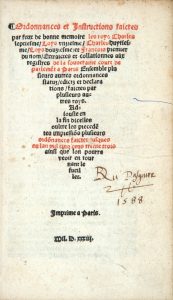 Ordonnances et Instructions faictes
par feux de bonne memoire les roys Charles
septiesme/ Loys unziesme/ Charles huyties-
me/ Loys douziesme et Francoys premier
du nom/ Extraictes et collationnees aux
registres de la souveraine court de
parlement a Paris Ensemble plu-
sieurs autres ordonnances
statuz/ edictz et declara-
tions/ faictes par
plusieurs au-
tres roys.
Ad-
iouste en
la fin dicelles
oultre les precede-
tes impressiõs plusieurs
ordõnances faictes jusques
en lan mil cinq cens trente trois
ainsi que lon pourra
veoir en tour-
nant le
fueil-
let.
1588
Imprime a Paris.
Mil. D. xxxiij.